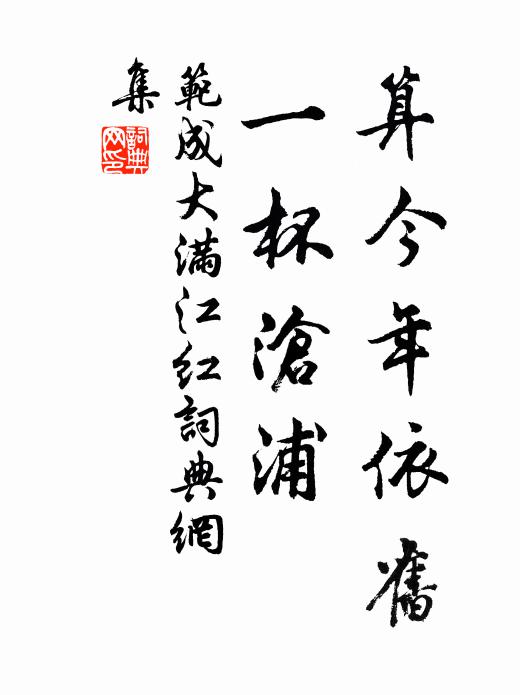 算今年依舊
一杯滄浦
範成大滿江紅詞典網
集
詞典网印